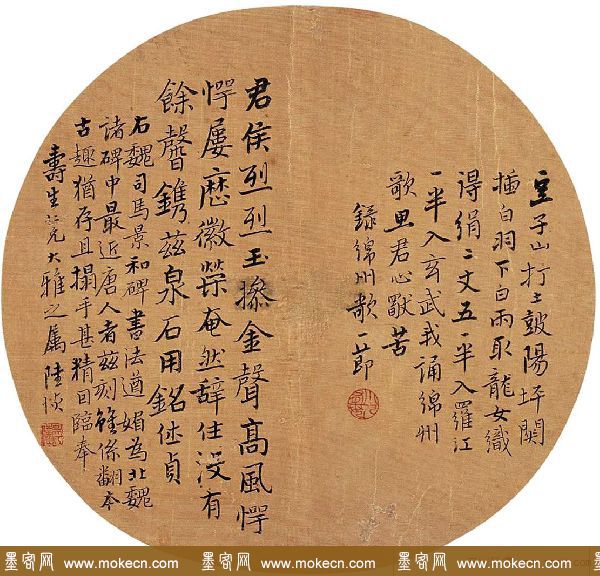 豆子山打土皷陽坪関
撞白羽下白雨取龍女織
得絹二丈五一半入羅江
一半入玄武我誦綿州
歌思君心猒苦
録綿州歌一節
君侯烈烈玉操金聲高風愕
愕屢歷徽榮奄然辞住没有
餘馨鐫茲泉石用銘休貞
右魏司馬景和碑書法遒媚為北魏
諸碑中最近唐人者茲刻雖係翻本
古趣猶存且搨手甚精回臨奉
壽生兄大雅之属陸
墨客网 www.mokecn.com 墨客网 www.mokecn.com 墨客网 www.mokecn.com